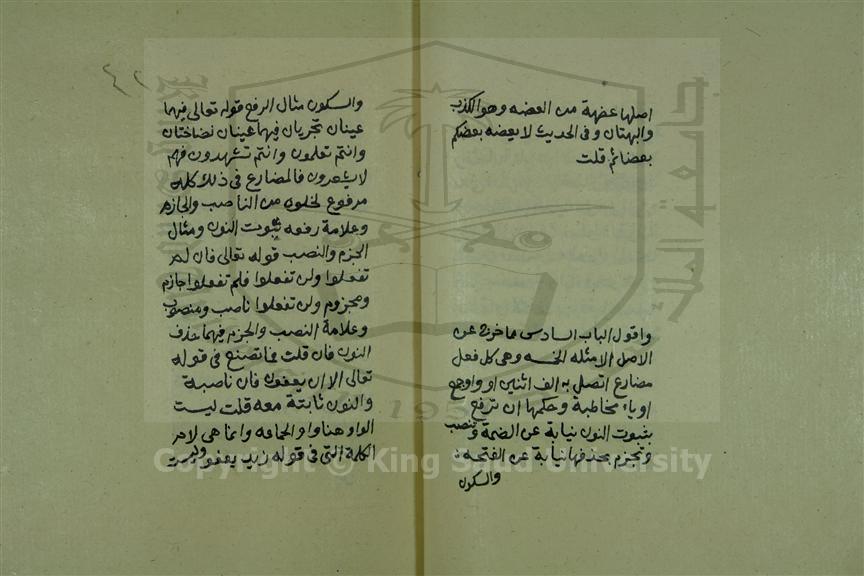 اصلها عضهة من العضه وهو الكذب
والبهتان وفى الحديث لا يعضه بعضكم
بعضا ثم قلت
واقول الباب السادس مما خرج عن
الاصل الامثله الخمسه وهى كل فعل
مضارع اتصل به الف اثنين او واو جمع
او ياء مخاطبة وحكمها ان ترفع
بثبوت النون نيابة عن الضمة وتنصب
وتجزم بحذفها نيابة عن الفتحه
والسكون
٤٢
والسكون مثال الرفع قوله تعالى فيهما
عينان تجريان فيهما عينان نضاختان
وانتم تعلمون وانتم تشهدون فهم
لا يشعرون فالمضارع فى ذلك كله
مرفوع لخلوه من الناصب والجازم
وعلامة رفعه ثبوت النون ومثال
الجزم والنصب قوله تعالى فان لم
تفعلوا ولن تفعلوا فلم تفعلوا جازم
ومجزوم ولن تفعلوا ناصب ومنصوب
وعلامة النصب والجزم فيهما حذف
النون فان قلت فما تصنع فى قوله
تعالى الا ان يعفون فان ناصبة
والنون ثابتة معه قلت ليست
الواو هنا واو الجماعه وانما هى لام
الكلمة التى فى قوله زيد يعفو وليست
جامعة الملك سعود
1957
Copyright © King Saud University